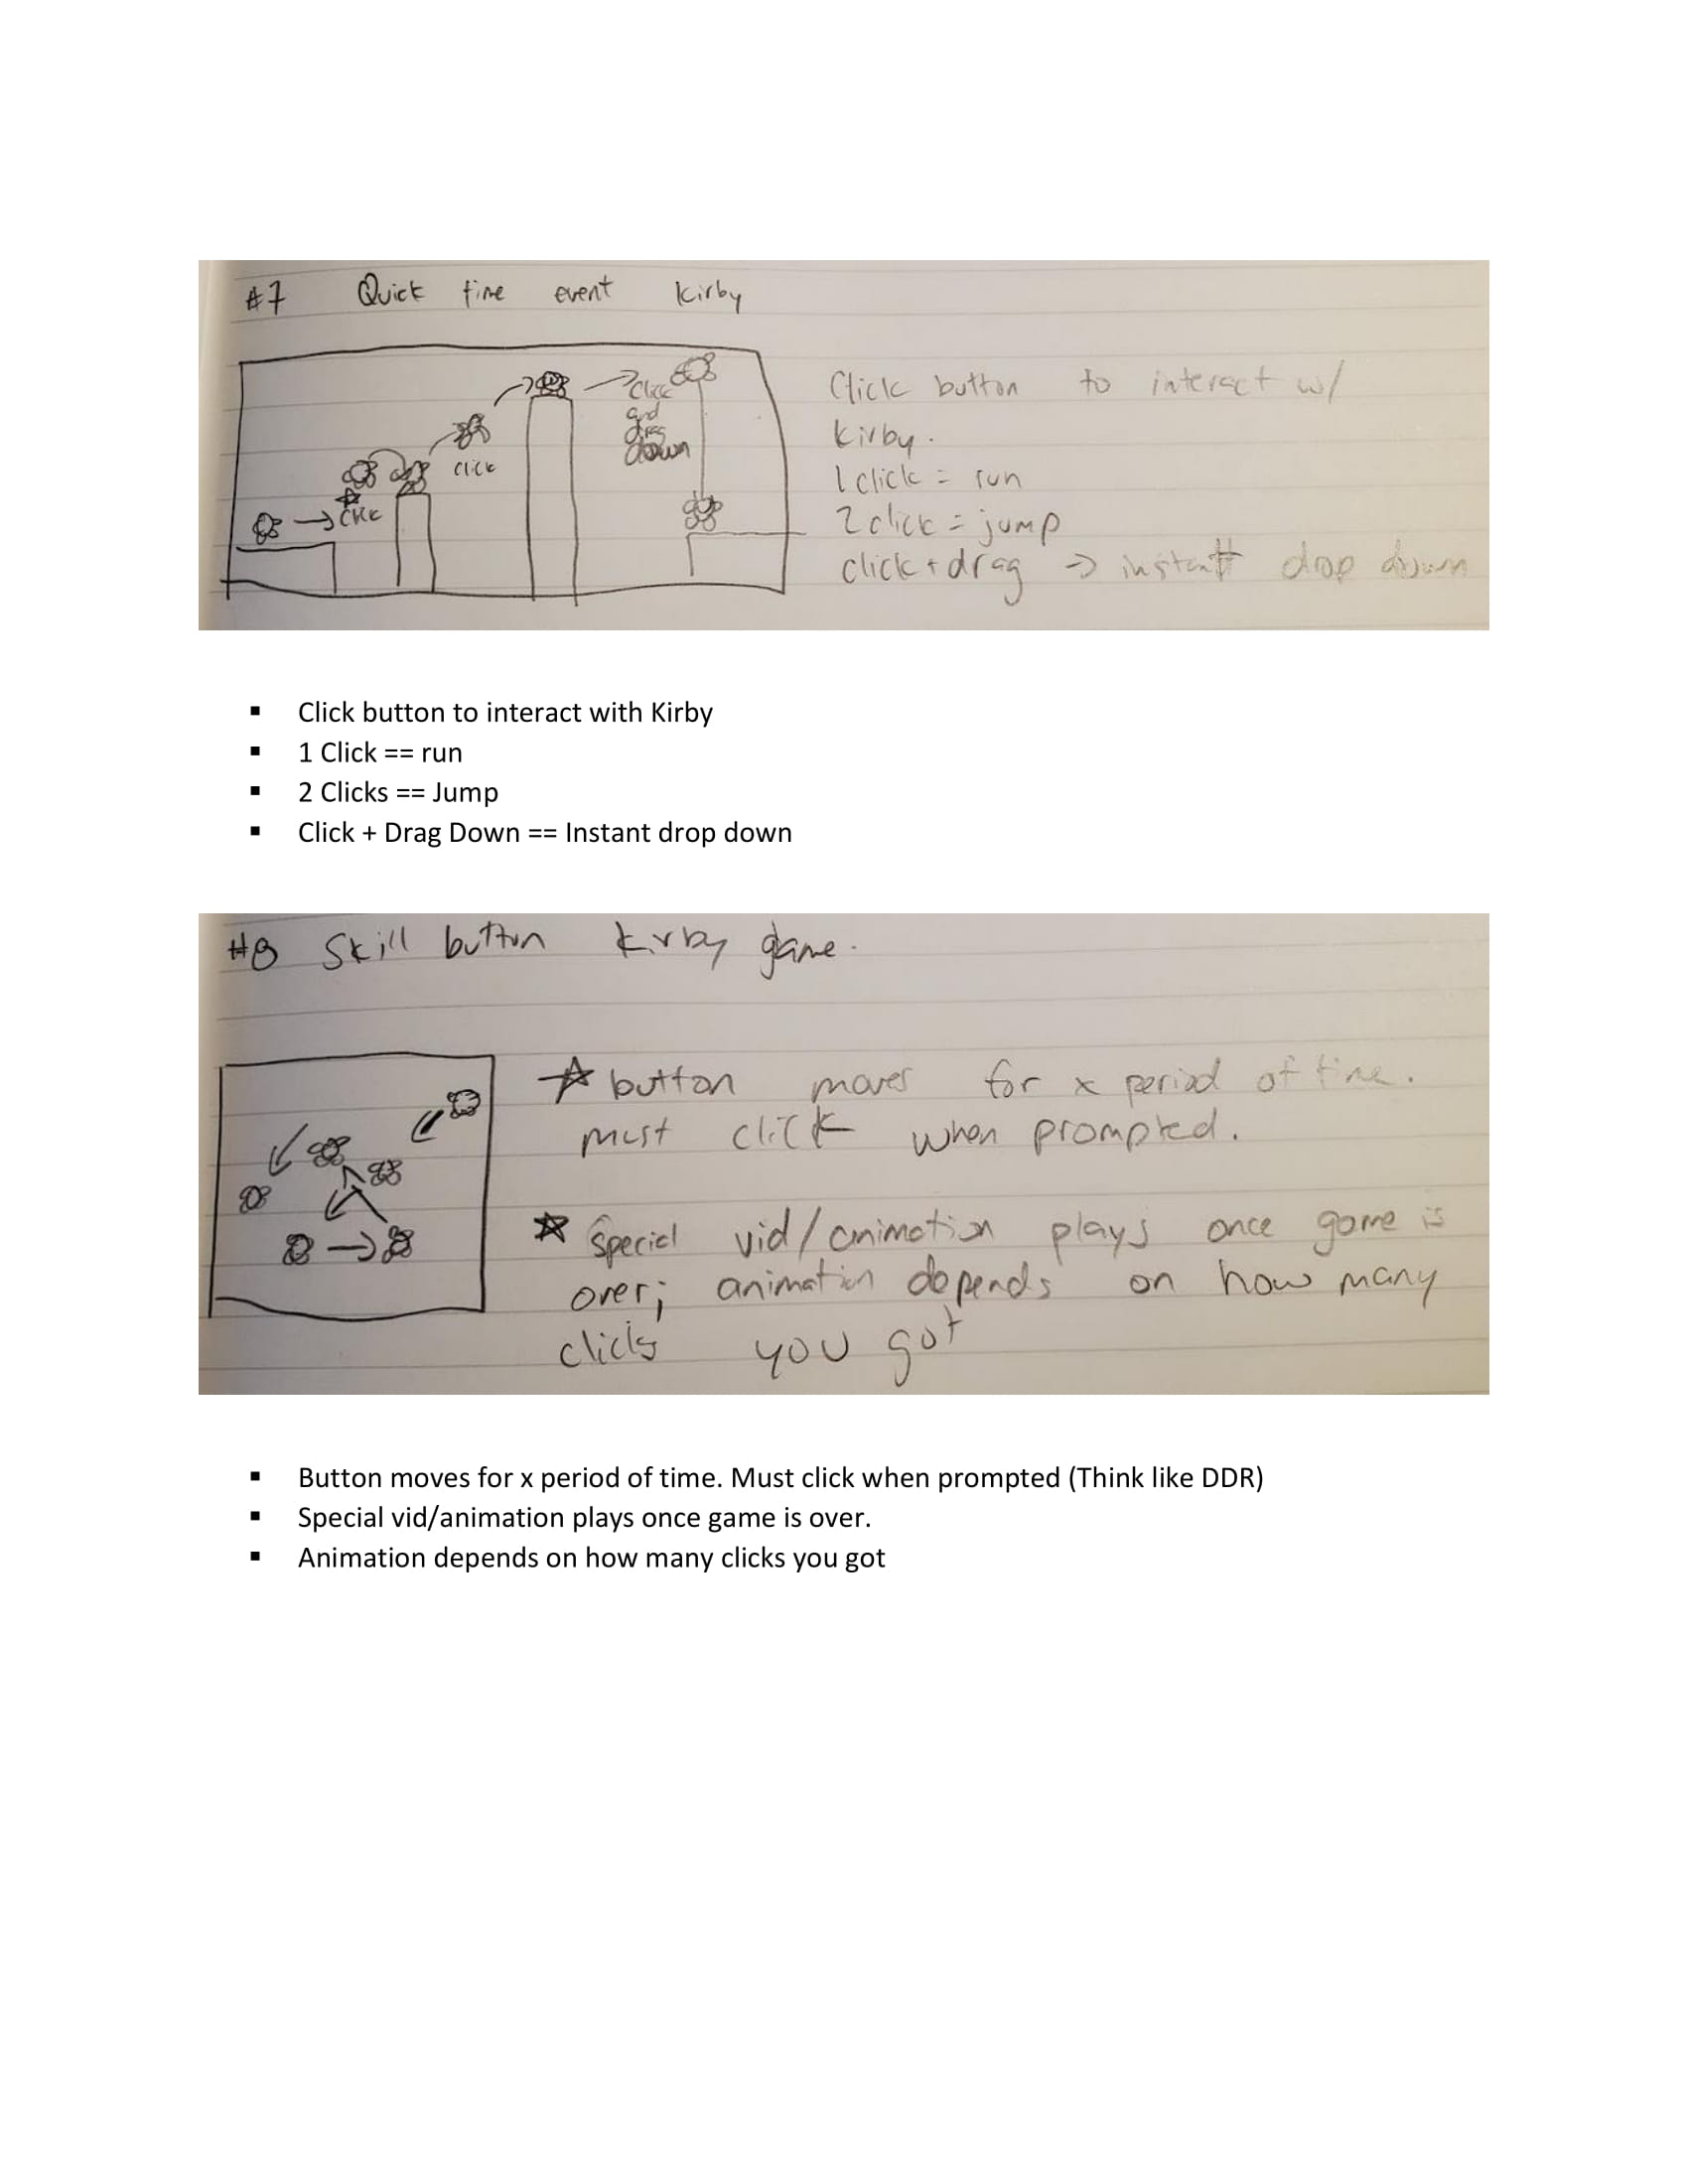 #7 Quick time event Kirby
Click button to interact w/
Kirby.
1 click = run
2 click = jump
click + drag → instant drop down
Click
Click
Click
and
drag
down
▪ Click button to interact with Kirby
▪ 1 Click == run
▪ 2 Clicks == Jump
▪ Click + Drag Down == Instant drop down
#8 Skill button Kirby game.
☆ button moves for x period of time.
must click when prompted.
☆ Special vid/animation plays once game is
over; animation depends on how many
clicks you got
▪ Button moves for x period of time. Must click when prompted (Think like DDR)
▪ Special vid/animation plays once game is over.
▪ Animation depends on how many clicks you got